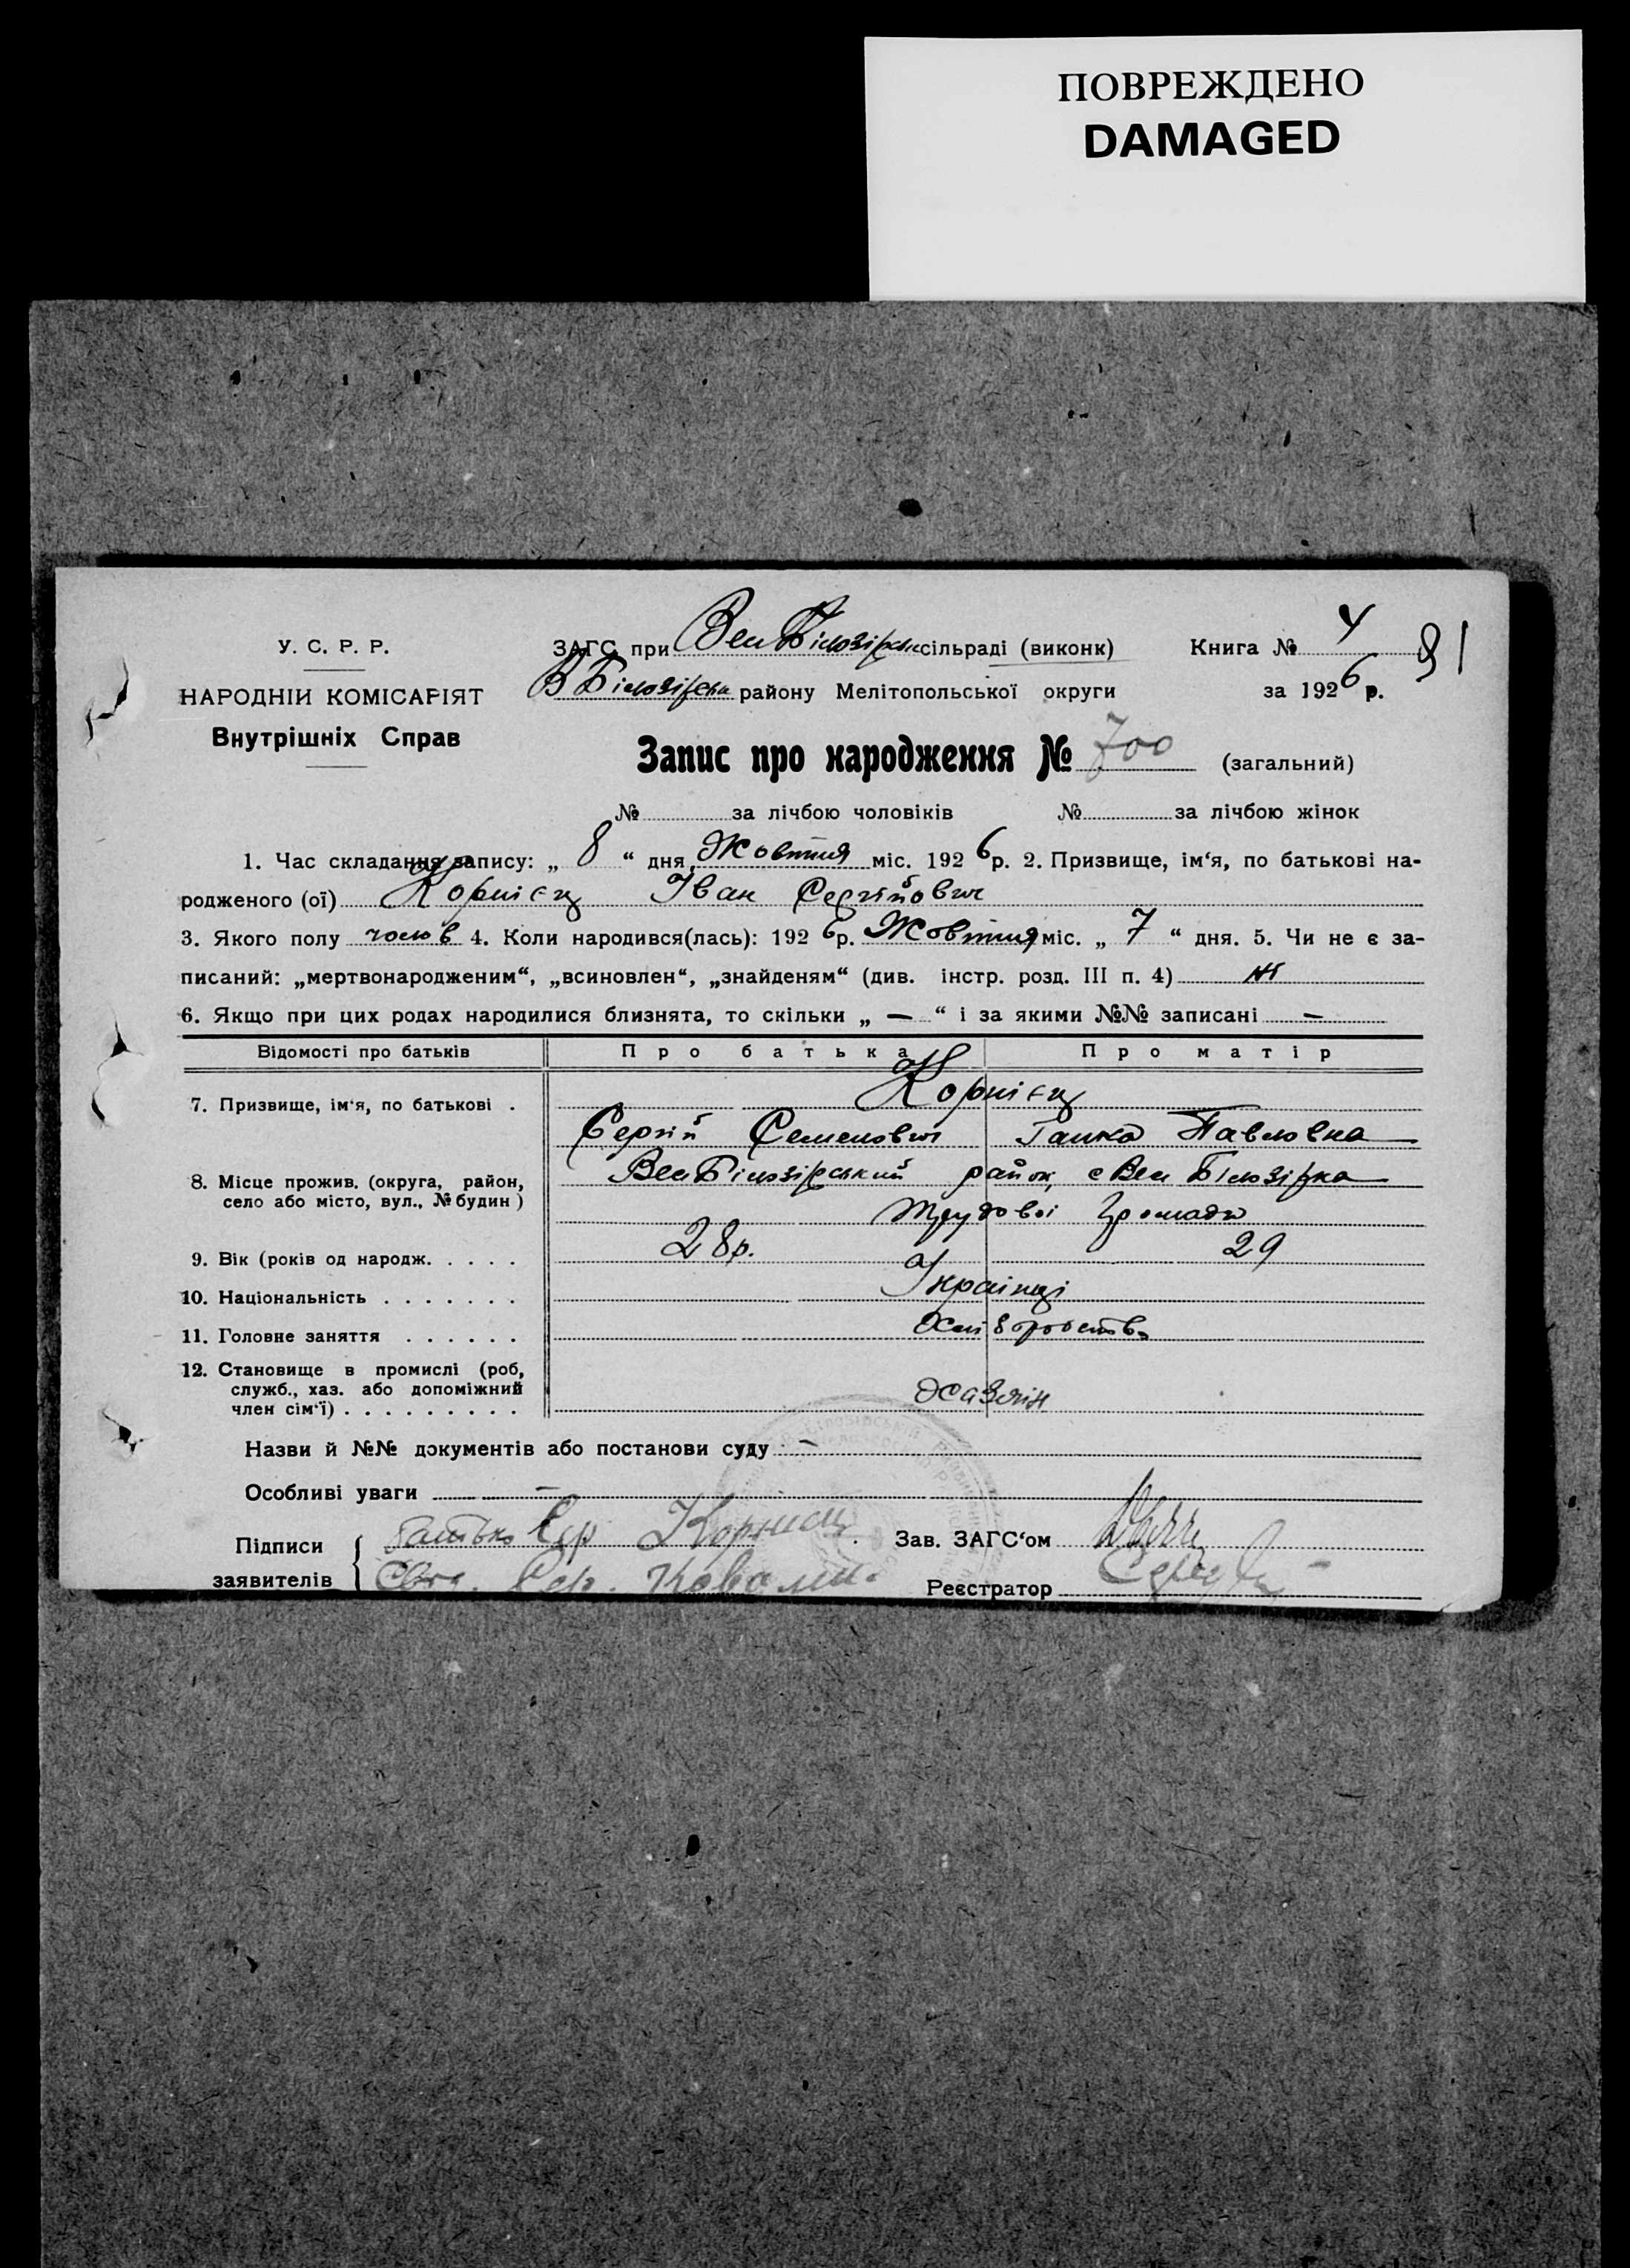 ПОВРЕЖДЕНО
DAMAGED
У. С. Р. Р.
НАРОДНІЙ КОМІСАРІЯТ
Внутрішніх Справ
ЗАГС при Вел Білозірськ сільраді (виконк)
В Білозірськ району Мелітопольської округи
Книга № 4
91
за 1926 р.
Запис про народження № 700 (загальний)
№ за лічбою чоловіків № за лічбою жінок
1. Час складання запису: „ 8 “ дня Жовтня міс. 1926 р. 2. Призвище, ім‘я, по батькові на-
родженого (ої) Корнієц Іван Сергійович
3. Якого полу чолов 4. Коли народився(лась): 1926 р. Жовтня міс. „ 7 “ дня. 5. Чи не є за-
писаний: „мертвонародженим“, „всиновлен“, „знайденям“ (див. інстр. розд. III п. 4) ні
6. Якщо при цих родах народилися близнята, то скільки „ — “ і за якими №№ записані —
Відомості про батьків Про батька Про матір
7. Призвище, ім‘я, по батькові . Корнієц
Сергій Семенович Ганна Павловна
8. Місце прожив. (округа, район,
село або місто, вул., № будин )
Вел Білозірський район, с Вел Білозірка
Трудової Громади
9. Вік (років од народж. . . . . 28 р. 29
10. Національність . . . . . . . Українці
11. Головне заняття . . . . . . Хліборобство
12. Становище в промислі (роб,
служб., хаз. або допоміжний
член сім‘ї) . . . . . . . . . Хазяін
Назви й №№ документів або постанови суду —
Особливі уваги —
Підписи
заявителів
батько Сер Корниец
Сер. Ковалш
Зав. ЗАГС‘ом
Реєстратор